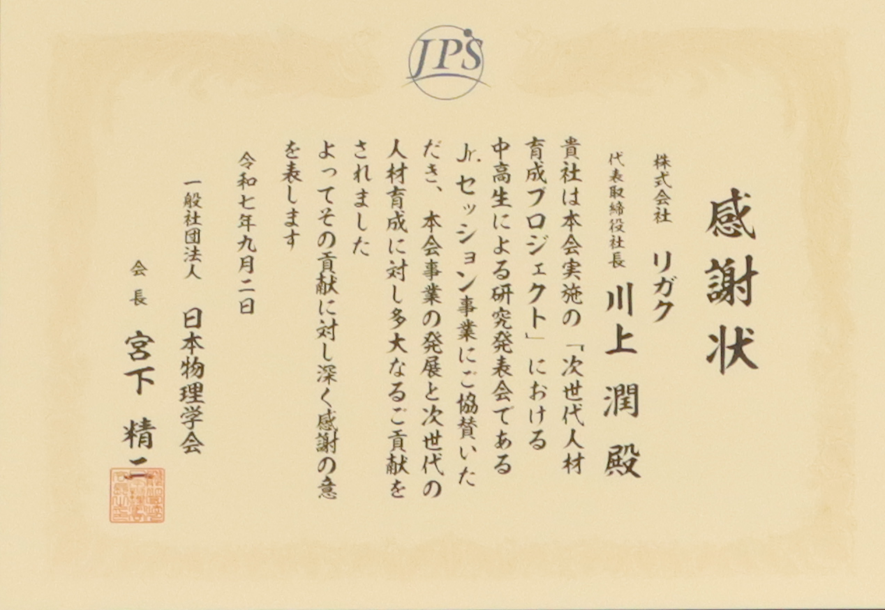 JPS
感謝状
株式会社 リガク
代表取締役社長 川上 潤 殿
貴社は本会実施の「次世代人材
育成プロジェクト」における
中高生による研究発表会である
Jr.セッション事業にご協賛いた
だき、本会事業の発展と次世代の
人材育成に対し多大なるご貢献を
されました
よってその貢献に対し深く感謝の意
を表します
令和七年九月二日
一般社団法人 日本物理学会
会長 宮下 精二